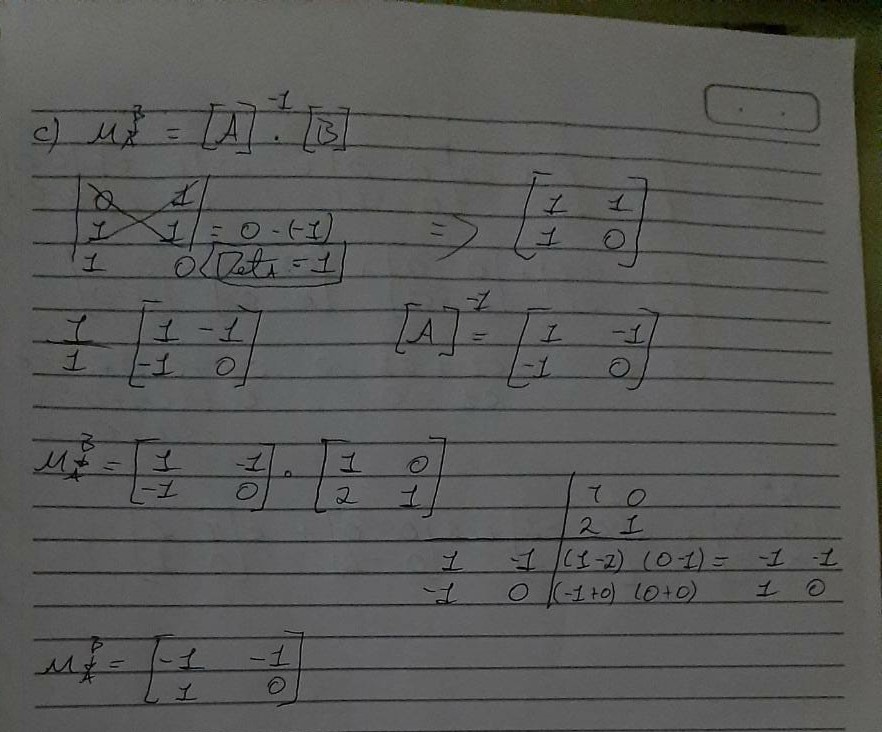 c) M_A^B = [A]^-1 . [B]
|0 1|
|1 1| = 0 - (-1) => [1 1
1 0 Det_A = 1 1 0]
1/1 [1 -1 [A]^-1 = [1 -1
-1 0] -1 0]
M_A^B = [1 -1 . [1 0
-1 0] 2 1]
1 0
2 1
1 -1 | (1-2) (0-1) = -1 -1
-1 0 | (-1+0) (0+0) 1 0
M_A^B = [-1 -1
1 0]